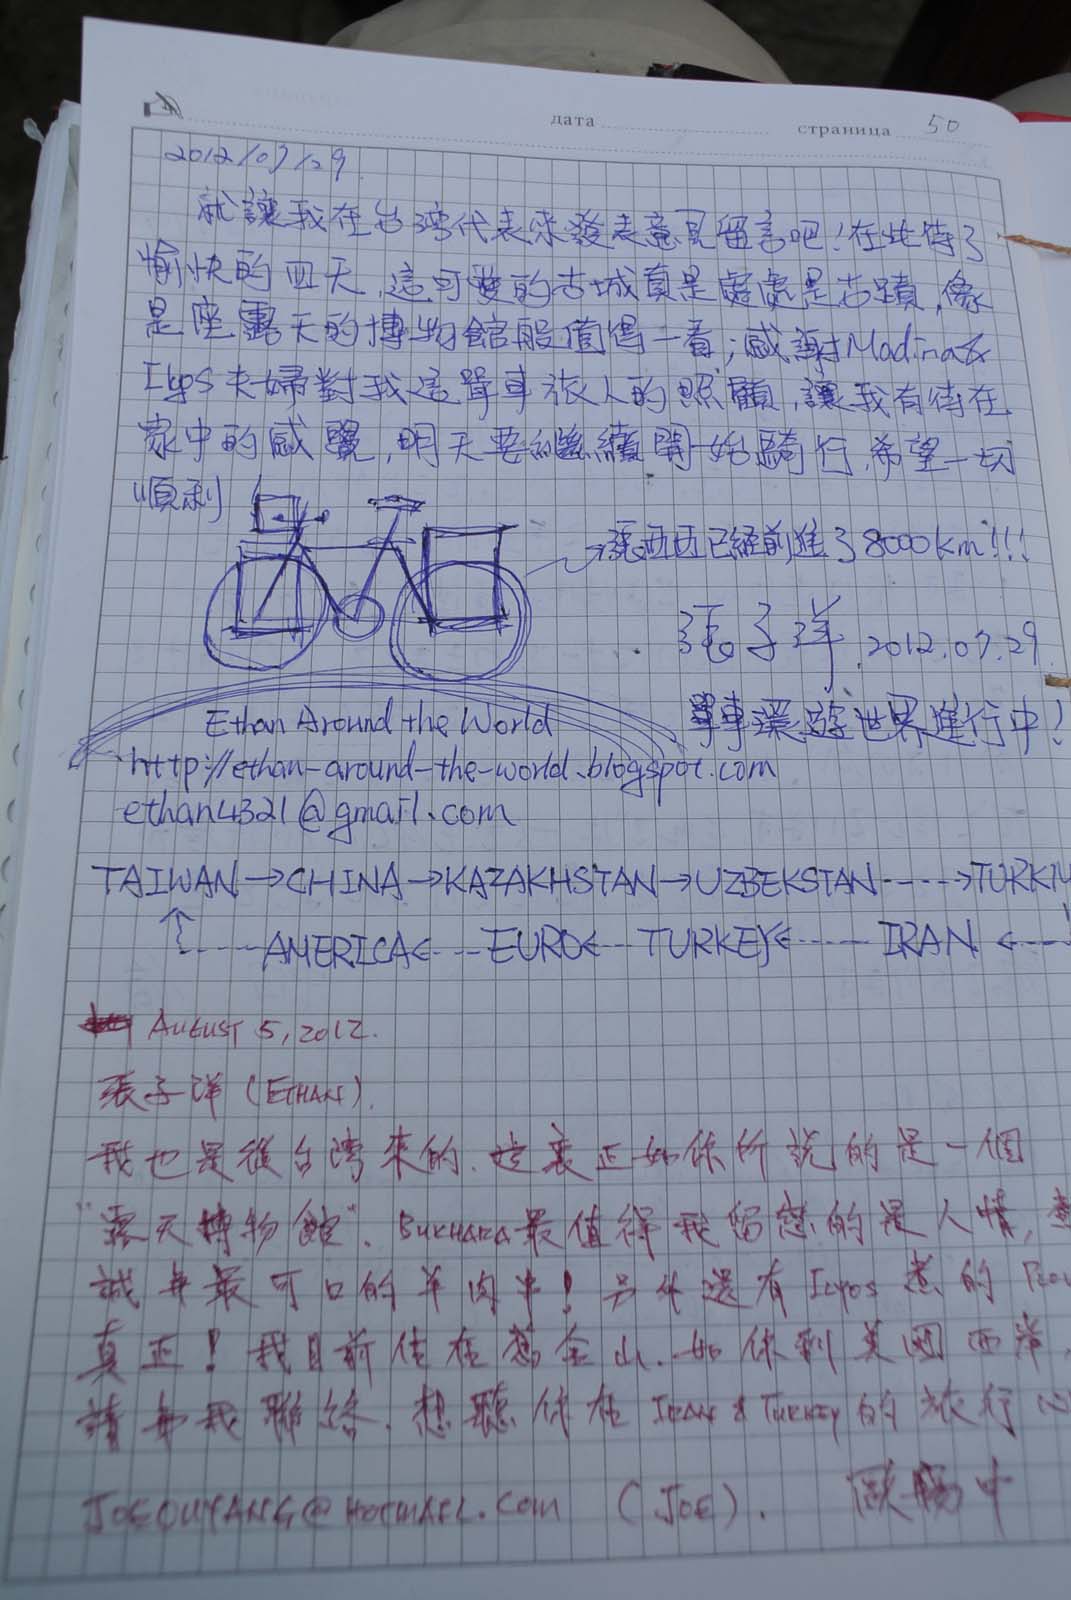 дата
страница 50
2012/07/29
就讓我在台灣代表來發表意見留言吧!在此待了
愉快的四天,這可愛的古城真是處處是古蹟,像
是座露天的博物館般值得一看;感謝Madina&
Ilyos夫婦對我這單車旅人的照顧,讓我有待在
家中的感覺,明天要繼續開始騎行,希望一切
順利
張西西已經前進了8000km!!!
張子洋 2012.07.29
Ethan Around the World
單車環遊世界進行中!
http://ethan-around-the-world.blogspot.com
ethan4321@gmail.com
TAIWAN→CHINA→KAZAKHSTAN→UZBEKSTAN---->TURKM
AMERICA<---EURO<--TURKEY<----IRAN<---
AUGUST 5, 2012.
張子洋 (ETHAN).
我也是從台灣來的.這裏正如你所說的是一個
"露天博物館". BUKHARA最值得我留戀的是人情,
誠并最可口的羊肉串!另外還有Ilyos煮的
真正!我目前住在舊金山.如你到美國西岸,
請与我聯絡.想聽你在IRAN & TURKEY的旅行心
JOEOUYANG@HOTMAIL.COM (JOE). 歐陽中